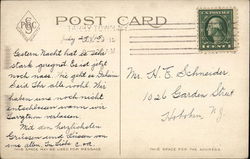 POST CARD
Gestern Nacht hat es sehr
stark geregnet. Es ist jetzt
noch nass. Wie geht es
Seid Ihr alle wohl? Wir
haben uns noch nicht
entschlossen wann wir
fahren.
Mit den herzlichsten
Grüssen und Küssen von
uns allen. In Liebe
Mr. H. E. Schneider
1026 Garden Street
Hoboken N.J.
THIS SPACE MAY BE USED FOR MESSAGE
THIS SPACE FOR THE ADDRESS